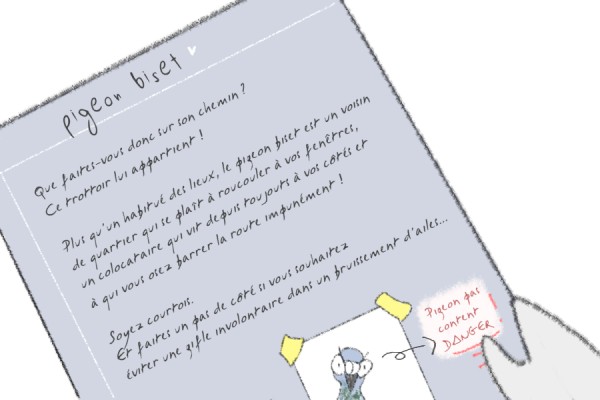 pigeon biset
Que faites-vous donc sur son chemin ?
Ce trottoir lui appartient !
Plus qu'un habitué des lieux, le pigeon biset est un voisin
de quartier qui se plaît à roucouler à vos fenêtres,
un colocataire qui vit depuis toujours à vos côtés et
à qui vous osez barrer la route impunément !
Soyez courtois.
Et faites un pas de côté si vous souhaitez
éviter une gifle involontaire dans un bruissement d'ailes...
Pigeon pas
content
DANGER